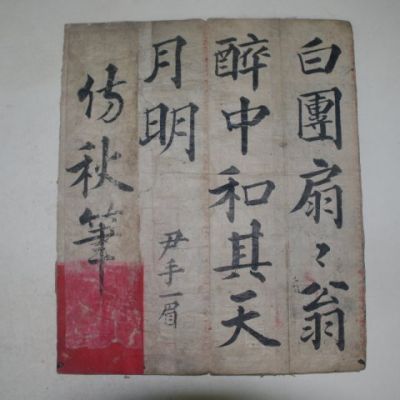 白團扇〻翁
醉中和其天
月明
尹手一眉
倣秋筆